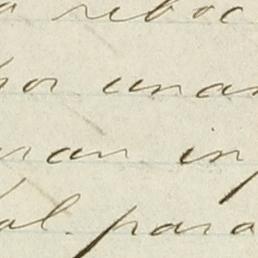 a reboc
por unan
ran in
al. para